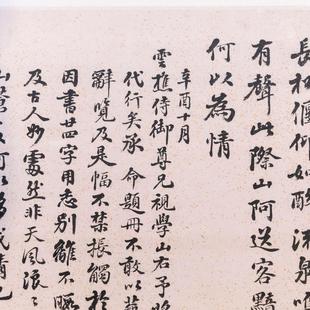 長松偃仰如酣沫泉噴
有聲此際山阿送客黯
何以為情
辛酉十月
雲樵侍御尊兄視學山右予將
代行矣承命題冊不敢以蕪
辭覽及是幅不禁振觸於
因書廿四字用志別雖不
及古人妙處然非天風浪浪
山蒼